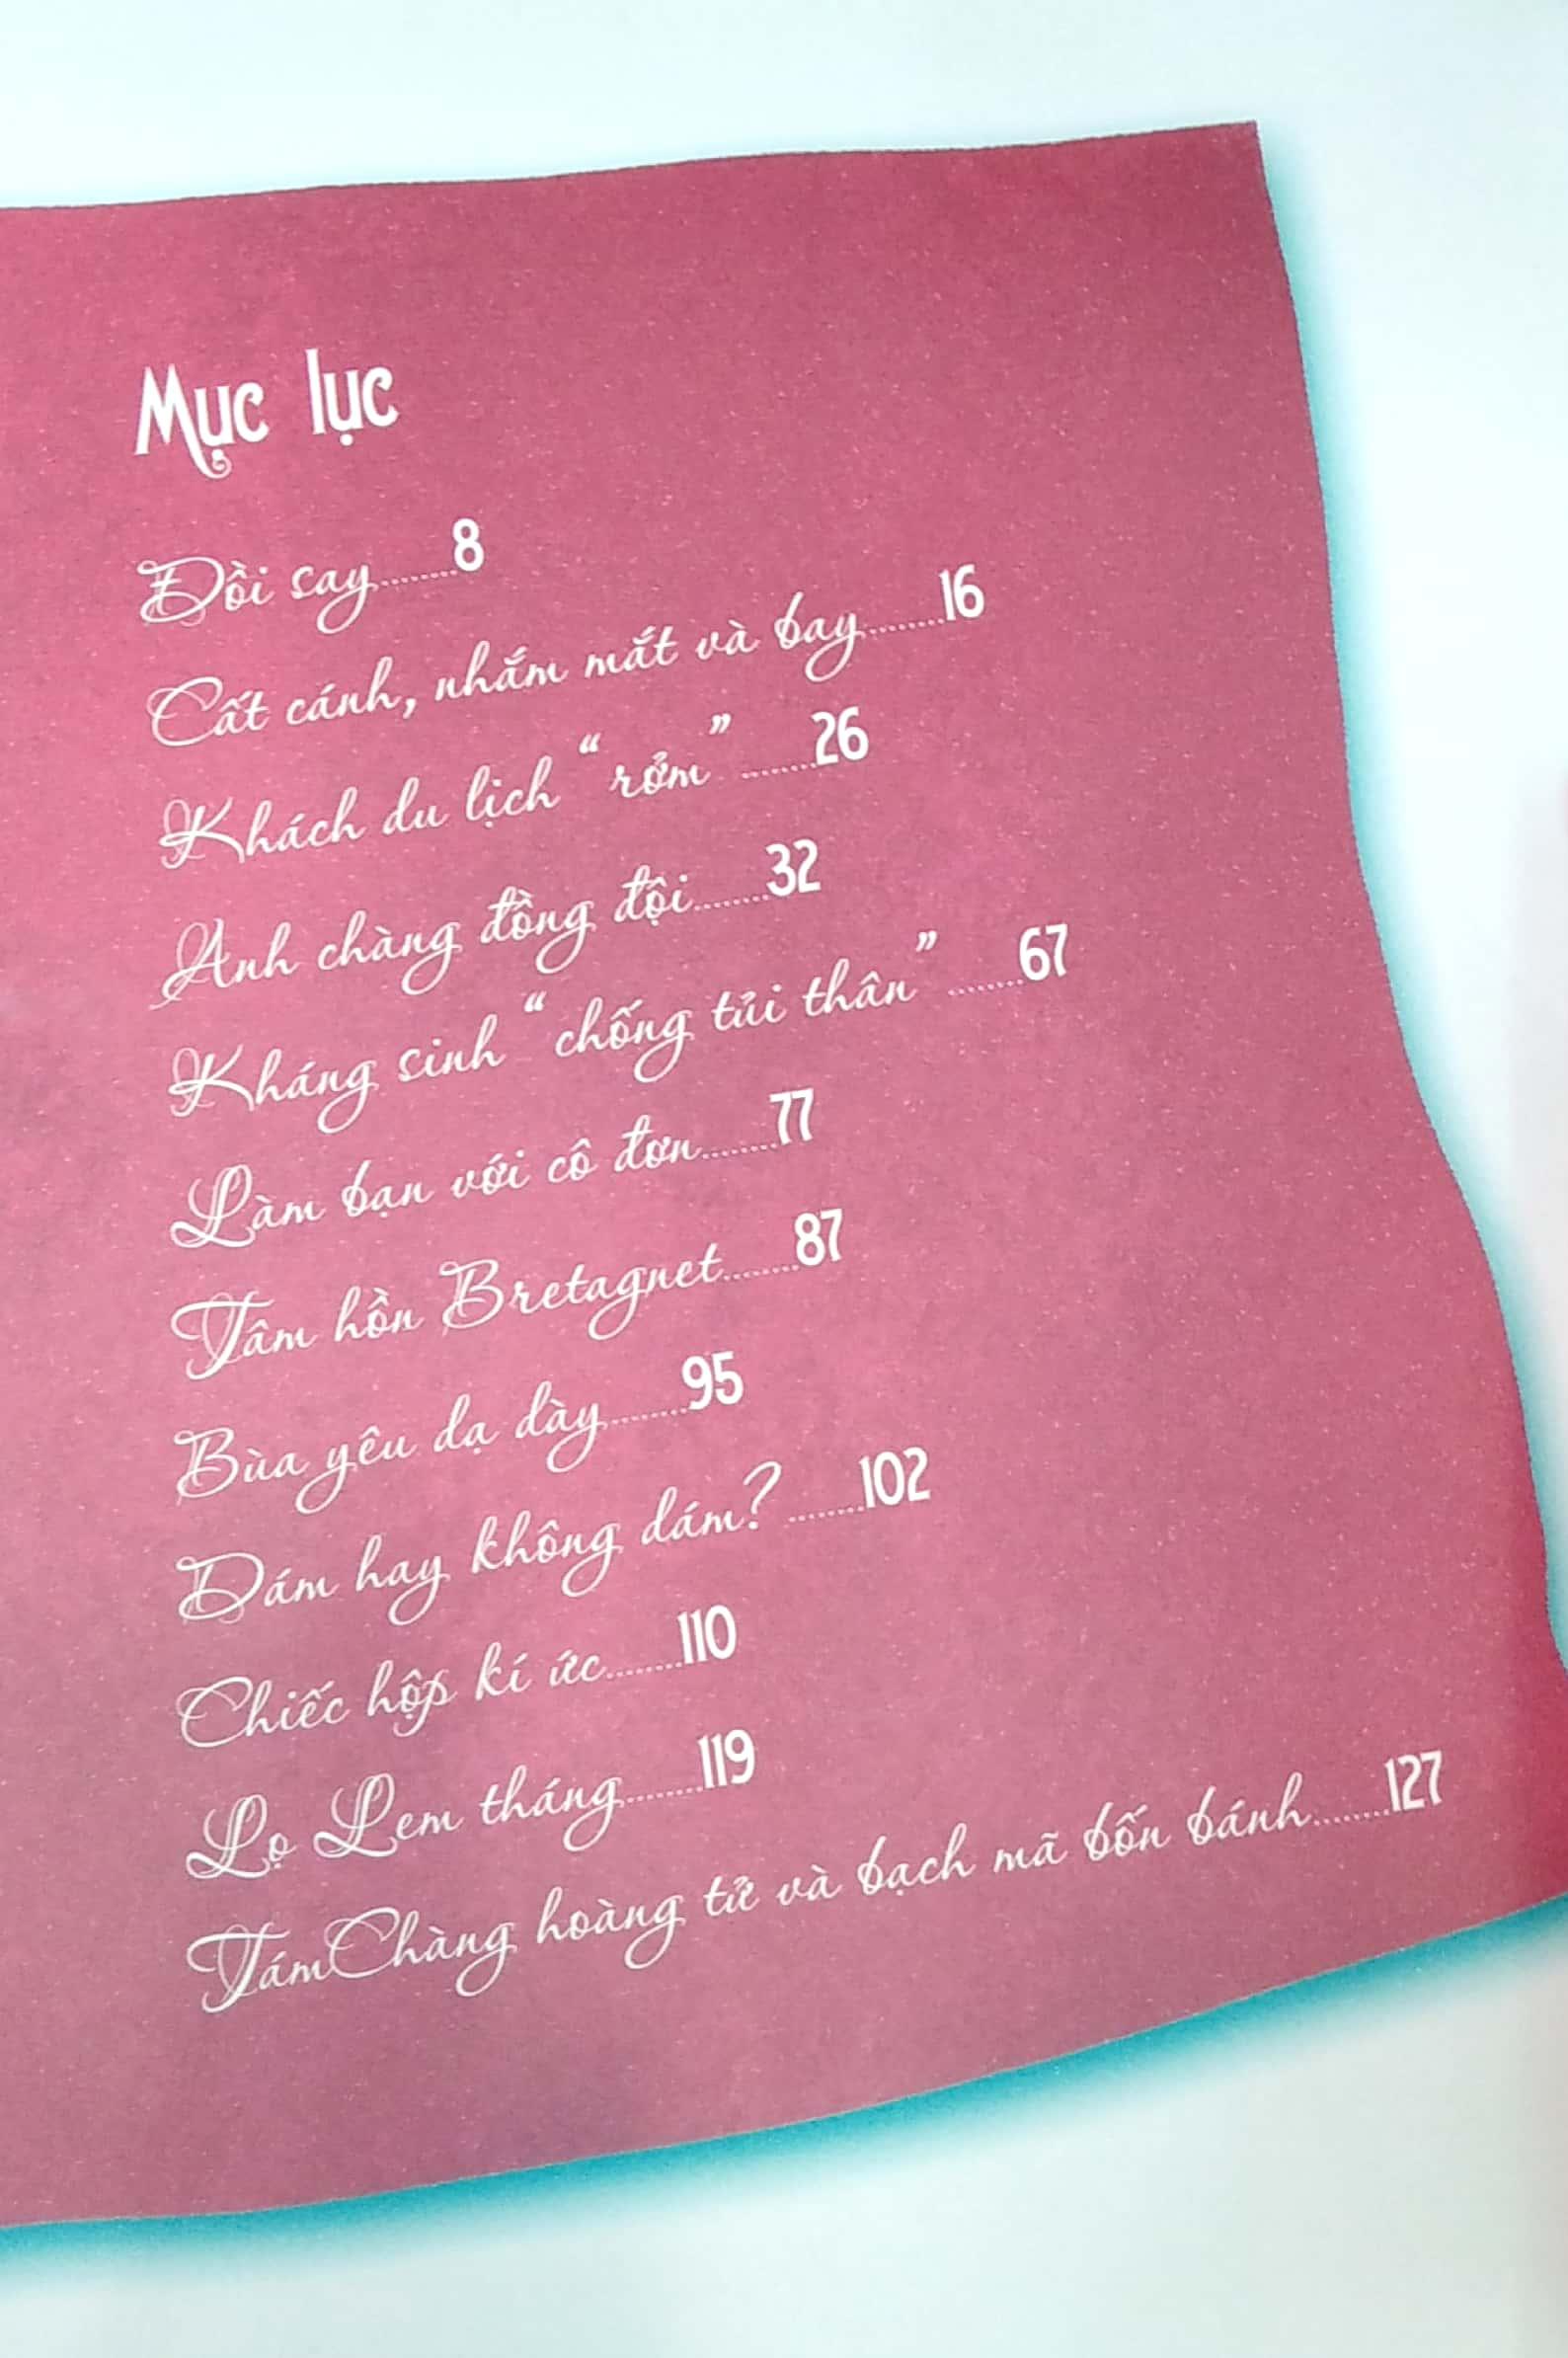 Mục lục
Đồi say........8
Cất cánh, nhắm mắt và bay........16
Khách du lịch “rởm” ........26
Anh chàng đồng đội........32
Kháng sinh “chống tủi thân” ........67
Làm bạn với cô đơn........77
Tâm hồn Bretagnet........87
Bùa yêu dạ dày........95
Dám hay không dám? ........102
Chiếc hộp kí ức........110
Lọ Lem tháng........119
TámChàng hoàng tử và bạch mã bốn bánh........127